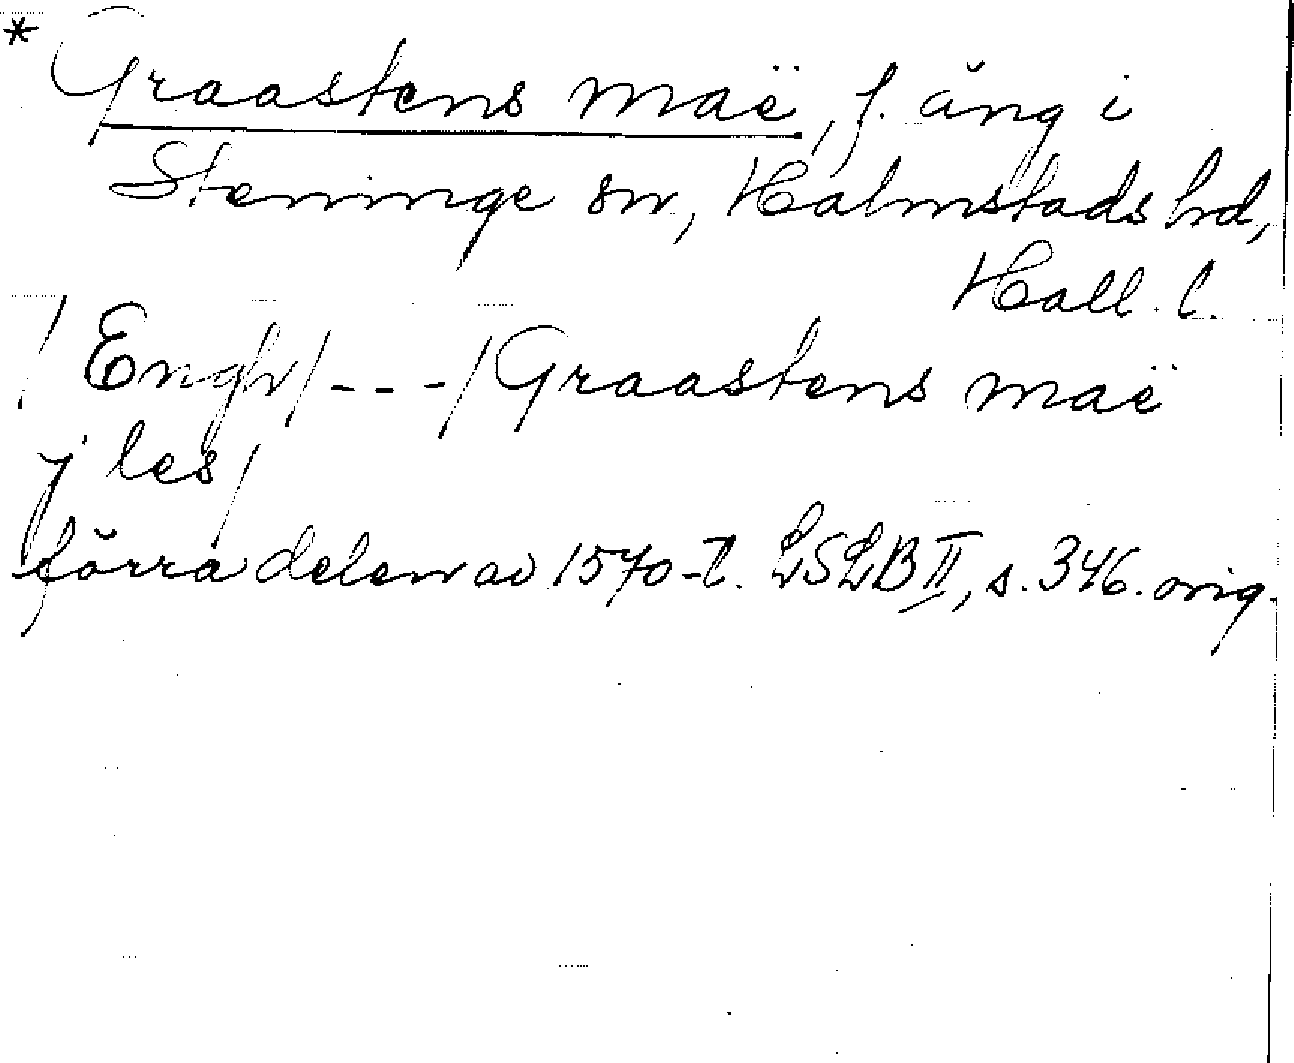 * Graastens maë, f. äng i
Steninge sn, Halmstads hd,
Hall. l.
/Engh/---/Graastens maë
j les/
förra delen av 1570-t. LSLB II, s. 346. orig.